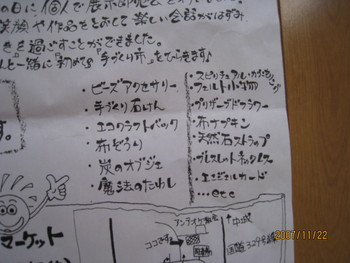 の日に、個人で
笑顔や作品をとおして楽しい会話がはずみ
きを過ごすことができました。
人と一緒に『初めて』『手づくり市』を
す。
・ビーズアクセサリー
・手づくり石けん
・エコクラフトバック
・布ぞうり
・炭のオブジェ
・魔法のたわし
・スピリチュアル・カウンセリング
・フェルト小物
・プリザーブドフラワー
・布ナプキン
・天然石ストラップ
・ブレスレット・ネックレス
・エンジェルカード
・・・etc
マーケット
ココです
↑中城
国道329号線
2007/11/22